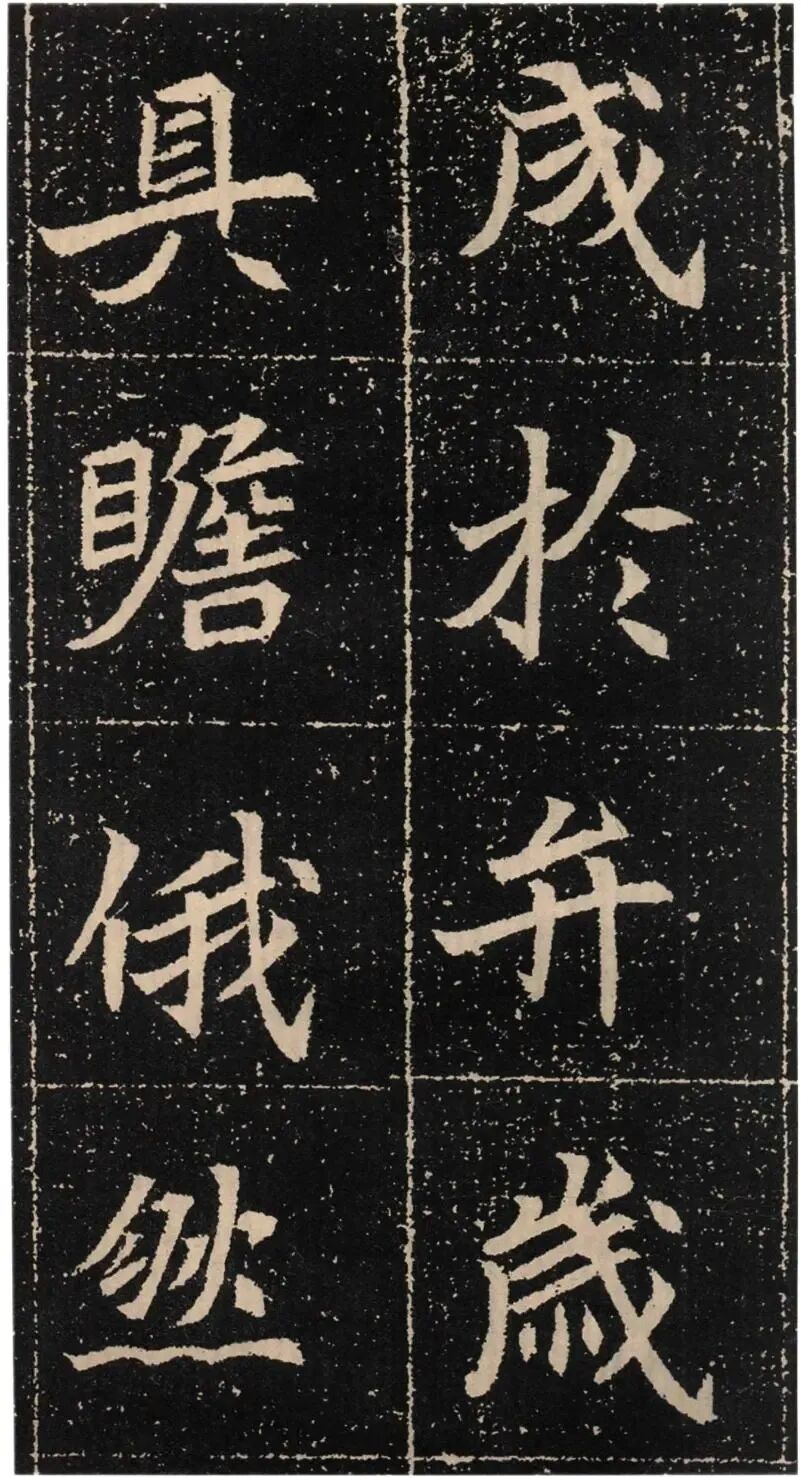 成於弁歲
具瞻俄然